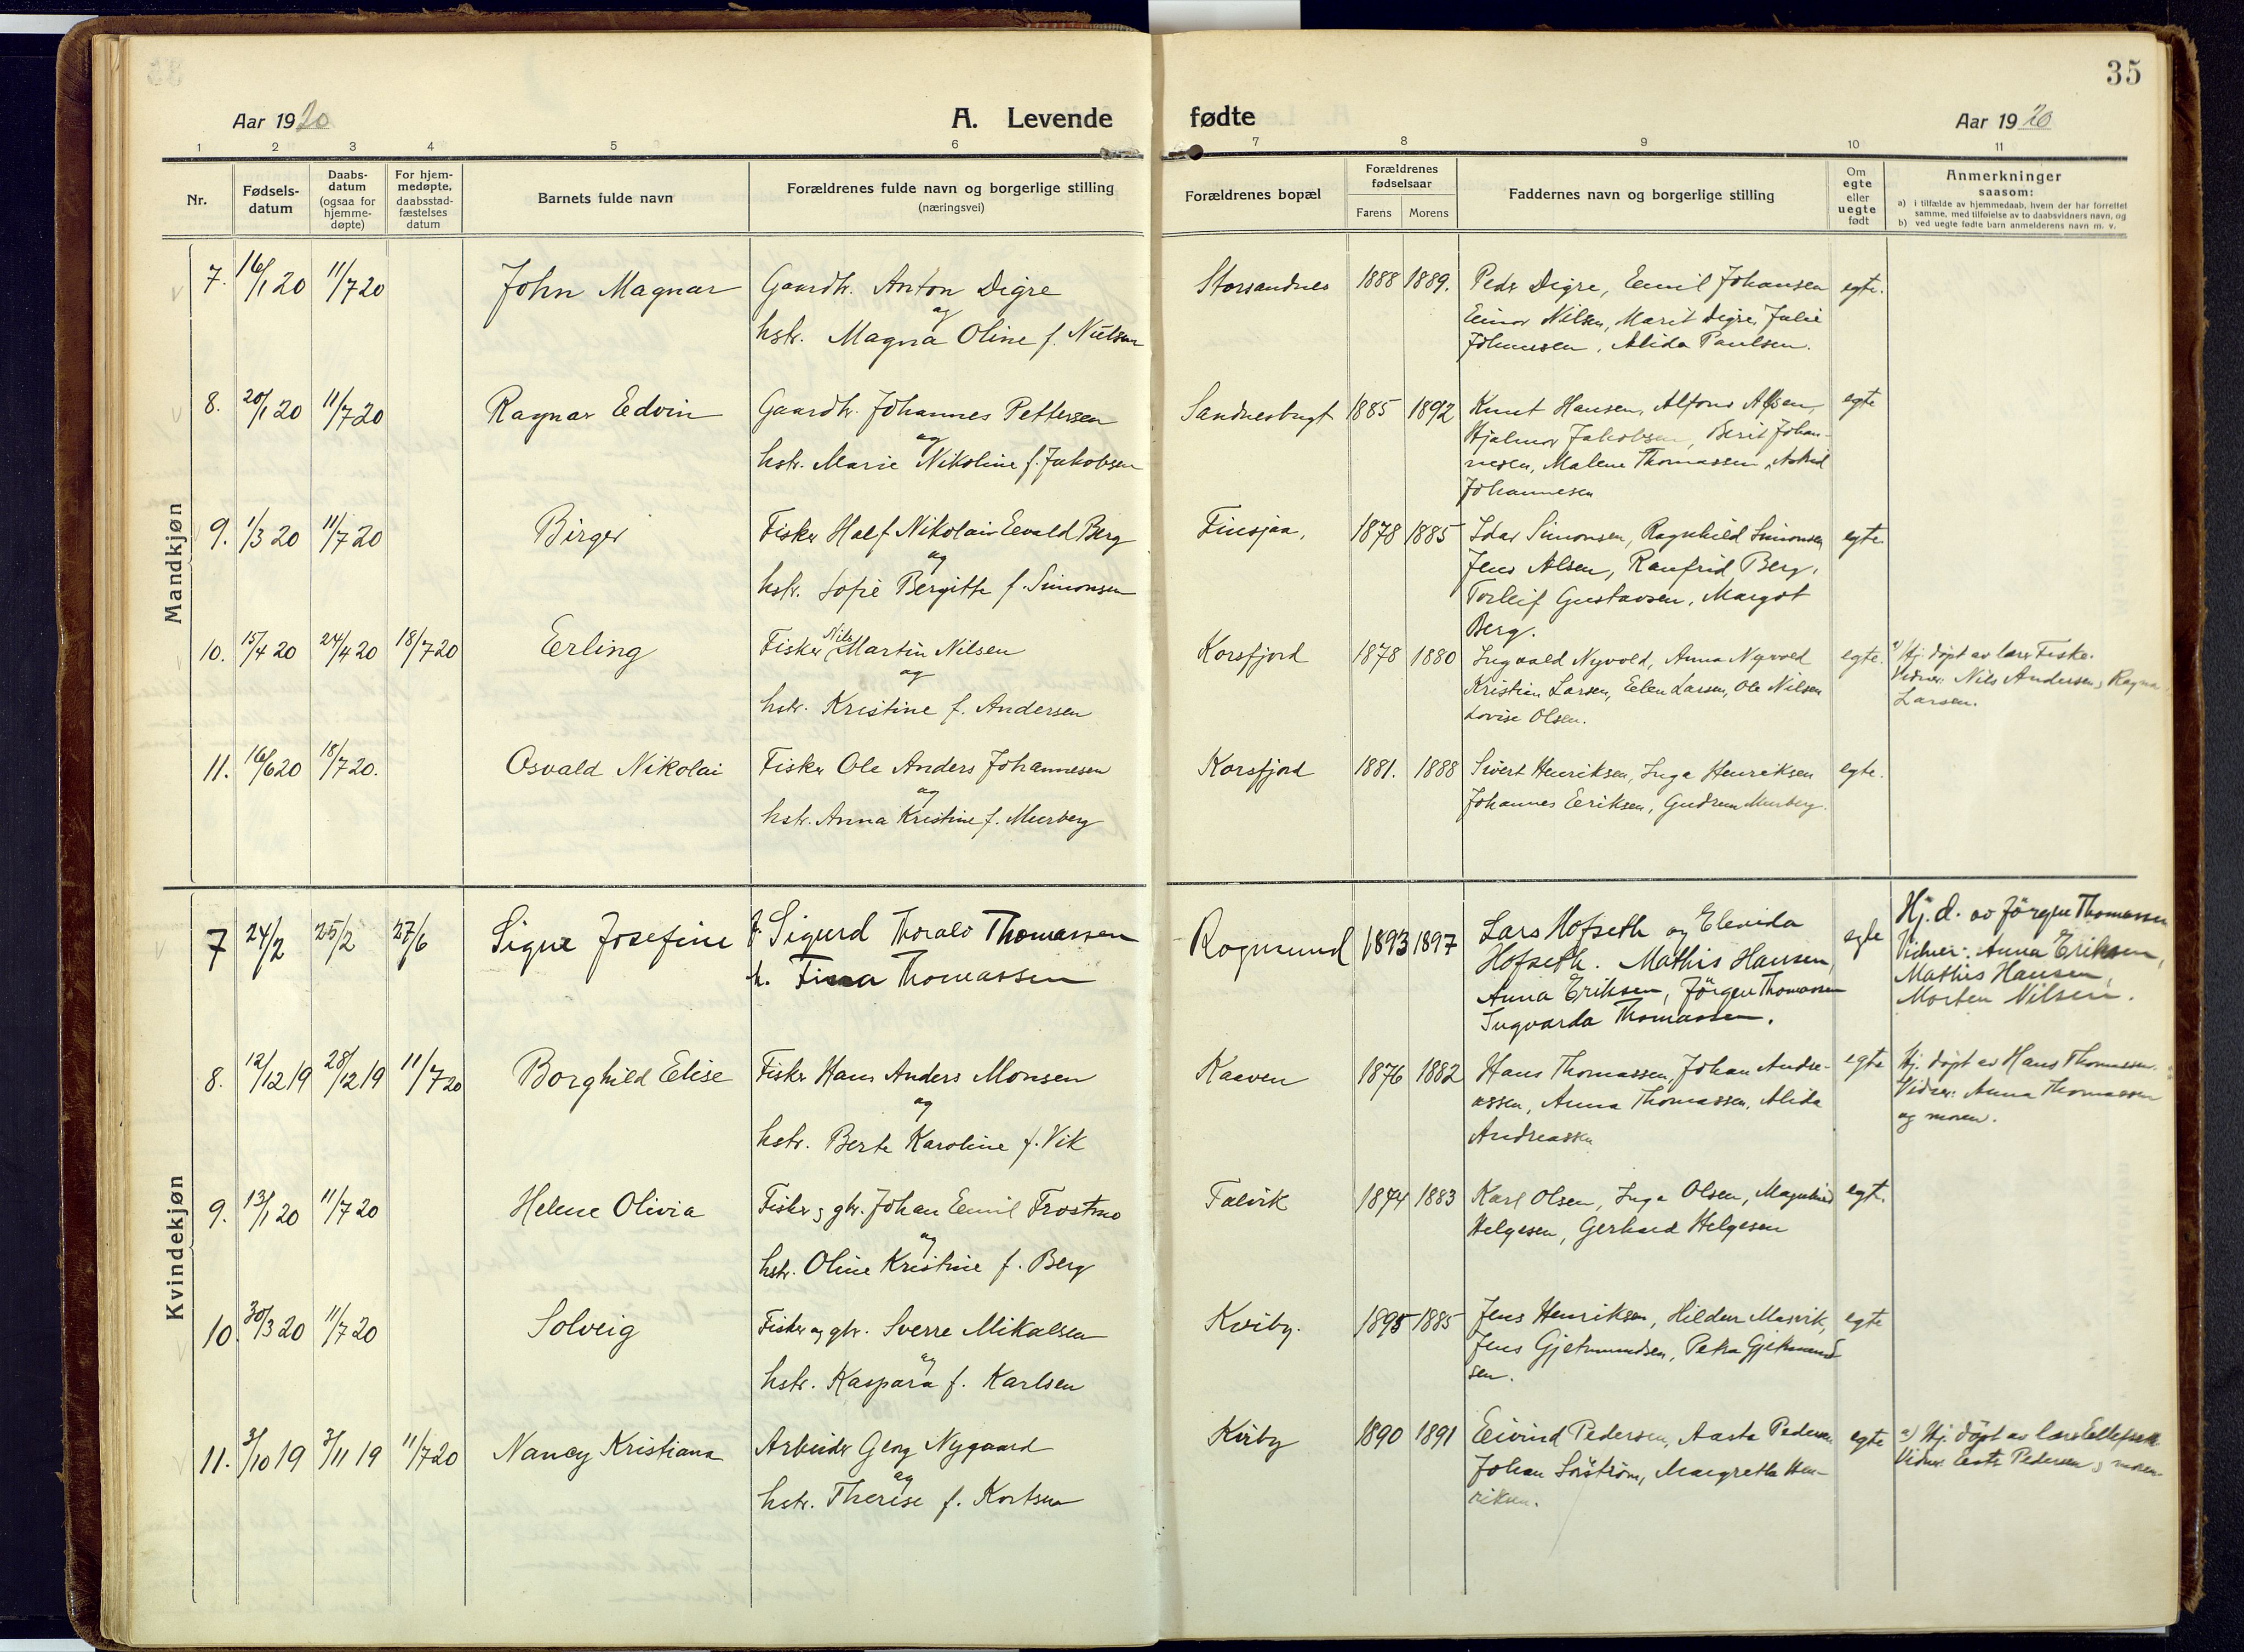 35
Aar 1920
A. Levende fødte
Aar 1920
1 2 3 4 5 6 7 8 9 10 11
Nr.
Fødsels-
datum
Daabs-
datum
(ogsaa for
hjemme-
døpte)
For hjem-
medøpte,
daabsstad-
fæstelses
datum
Barnets fulde navn
Forældrenes fulde navn og borgerlige stilling
(næringsvei)
Forældrenes bopæl
Forældrenes
fødselsaar
Farens Morens
Faddernes navn og borgerlige stilling
Om
egte
eller
uegte
født
Anmerkninger
saasom:
a) i tilfælde av hjemmedaab, hvem der har forrettet
samme, med tilføielse av to daabsvidners navn, og
b) ved uegte fødte barn anmelderens navn m. v.
Mandkjøn
7. 16/1 20 11/7 20 John Magnar Gaardbr. Anton Digre Storsandnes 1888 1889. Peder Digre, Emil Johansen egte.
og
hstr. Magna Oline f. Nielsen
Einar Nilsen, Marit Digre, Julie
Johannesen, Alida Paulsen.
8. 20/1 20 11/7 20 Ragnar Edvin Gaardbr. Johannes Pettersen Sandnesbugt 1885 1892 Knut Hansen, Alfons Alsen, egte
og
hstr. Marie Nikoline f. Jakobsen
Hjalmar Jakobsen, Berit Johan-
nesen, Malene Thomassen, Astrid
Johannesen
9. 1/3 20 11/7 20 Birger Fisker Half Nikolai Evald Berg 1878 1885 Idar Simonsen, Ragnhild Simonsen egte.
og
hstr. Sofie Bergitte f. Simonsen
Jens Alsen, Ranfrid Berg,
Torleif Gustavsen, Margot
Berg.
10. 15/4 20 24/4 20 18/7 20 Erling Fisker Nils Martin Nilsen Korsfjord 1878 1880 Ingvald Nyvold, Anna Nyvold egte. a) Hj. døpt av lærer Fiske.
og
hstr. Kristine f. Andersen
Kristian Larsen, Ellen Larsen, Ole Nilsen
Lovise Olsen.
Vidner: Nils Andersen, Ragna
Larsen.
11. 16/6 20 18/7 20. Osvald Nikolai Fisker Ole Anders Johannesen Korsfjord 1881. 1888 Sivert Henriksen, Inga Henriksen egte.
og
hstr. Anna Kristine f. Murberg
Johannes Eriksen, Gudrun Murberg.
Kvindekjøn
7 24/2 25/2 27/6 Signe Josefine f. Sigurd Thoralv Thomassen Rogmund 1893 1897 Lars Hofseth og Elevida egte Hj. d. av Jörgen Thomassen
h. Fina Thomassen
Hofseth. Mathis Hansen,
Anna Eriksen, Jörgen Thomassen
Ingvarda Thomassen.
Vidner: Anna Eriksen,
Mathis Hansen,
Morten Nilsen.
8. 12/12 19 28/12 19 11/7 20 Borghild Elise Fisker Hans Anders Monsen Kaaven 1876 1882 Hans Thomassen, Johan Andre- egte Hj. døpt av Hans Thomassen.
og
hstr. Berte Karoline f. Vik
assen, Anna Thomassen, Alida
Andreassen
Vidner: Anna Thomassen
og moren.
9. 13/1 20 11/7 20 Helene Olivia Fisker og gbr. Johan Emil Frostmo Talvik 1874 1883 Karl Olsen, Inga Olsen, Magnhild egte.
og
hstr. Oline Kristine f. Berg
Helgesen, Gerhard Helgesen
10. 30/3 20 11/7 20 Solveig Fisker og gbr. Sverre Mikalsen Kviby. 1895 1885 Jens Henriksen, Hildur Masvik, egte
og
hstr. Kaspara f. Karlsen
Jens Gjetmundsen, Petra Gjetmund
sen.
11. 3/10 19 3/11 19 11/7 20 Nancy Kristiana Arbeider Georg Nygaard Kviby 1890 1891 Eivind Pedersen, Aasta Pedersen egte a) Hj. døpt av lærer
og
hstr. Therese f. Kortsen
Johan Sørstrøm, Margretha Hen-
riksen.
Vidner: Pedersen og moren.